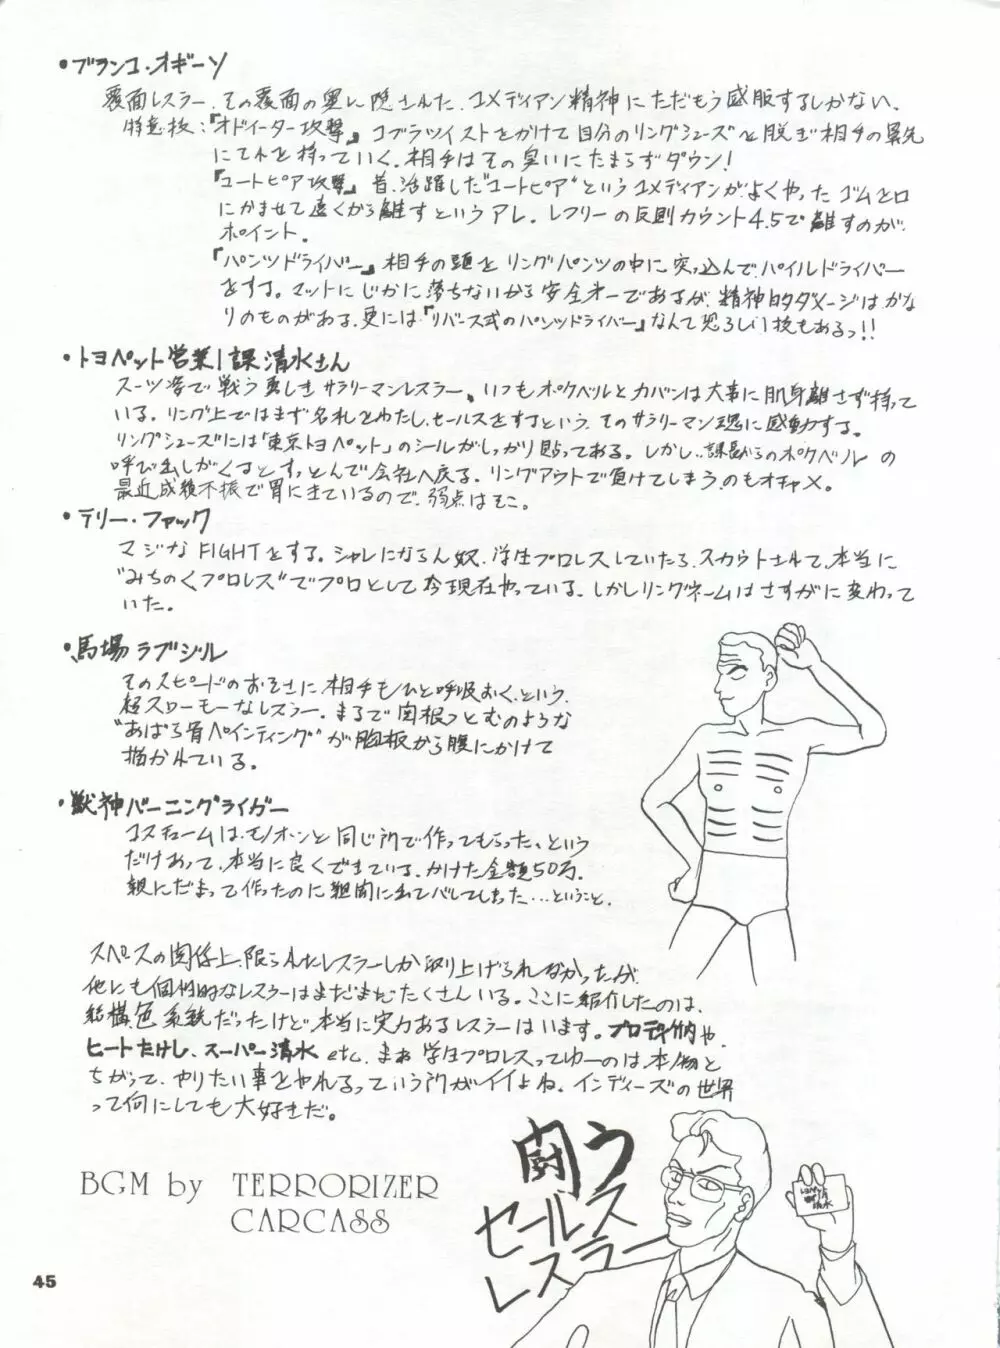 ・ブランコ・オギーソ
覆面レスラー。その覆面の奥に隠された、コメディアン精神にただもう感服するしかない。
特意技：『オドイーター攻撃』コブラツイストをかけて自分のリングシューズを脱ぎ相手の鼻先
にそれを持っていく。相手はその臭いにたまらずダウン!
『ユートピア攻撃』昔、活躍した"ユートピア"というコメディアンがよくやったゴムを口
にかませて遠くから離すというアレ。レフリーの反則カウント4.5で離すのが、
ポイント。
『パンツドライバー』相手の頭をリングパンツの中に突っ込んでパイルドライバー
をする。マットにじかに落ちないから安全オーであるが、精神的ダメージはかな
りのものがある、更には『リバース式のパンツドライバー』なんて恐ろしい技もあるっ!!
・トヨペット営業1課清水さん
スーツ姿で戦う勇しきサラリーマンレスラー、いつもポケベルとカバンは大事に肌身離さず持って
いる。リング上ではまず名札をわたし、セールスをするという、そのサラリーマン魂に感動する。
リングシューズには「東京トヨペット」のシールがしっかり貼ってある。しかし、課長からのポケベルの
呼び出しがくるとすっとんで会社へ戻る。リングアウトで負けてしまうのもオチャメ。
最近成績不振で胃にきているので、弱点はそこ。
・テリー・ファック
マジなFIGHTをする。シャレにならん奴。学生プロレスしていたら、スカウトされて、本当に
"みちのくプロレス"でプロとして今現在やっている。しかしリングネームはさすがに変わって
いた。
・馬場ラブジル
そのスピードのおそさに相手もひと呼吸おく、という、
超スローモーなレスラー。まるで関根つとむのような
"あばら骨ペインティング"が胸板から腹にかけて
描かれている。
・獣神バーニングライガー
コスチュームは、モノホンと同じ所で作ってもらった、という
だけあって、本当に良くできている。かけた金額50万。
親にだまって作ったのに新聞に出てバレてしまった…ということ。
スペースの関係上、限られたレスラーしか取り上げられなかったが、
他にも個性的なレスラーはまだまだたくさんいる。ここに紹介したのは、
結構色系統だったけど、本当に実力あるレスラーはいます。プロディ竹内や、
ヒートたけし、スーパー清水 etc. まぁ学生プロレスってゆーのは、本物と
ちがって、やりたい事をやれるっていう所がイイよね。インディーズの世界
って何にしても大好きだ。
BGM by TERRORIZER
CARCASS
闘う
セールス
レスラー
トヨペット
清水
45